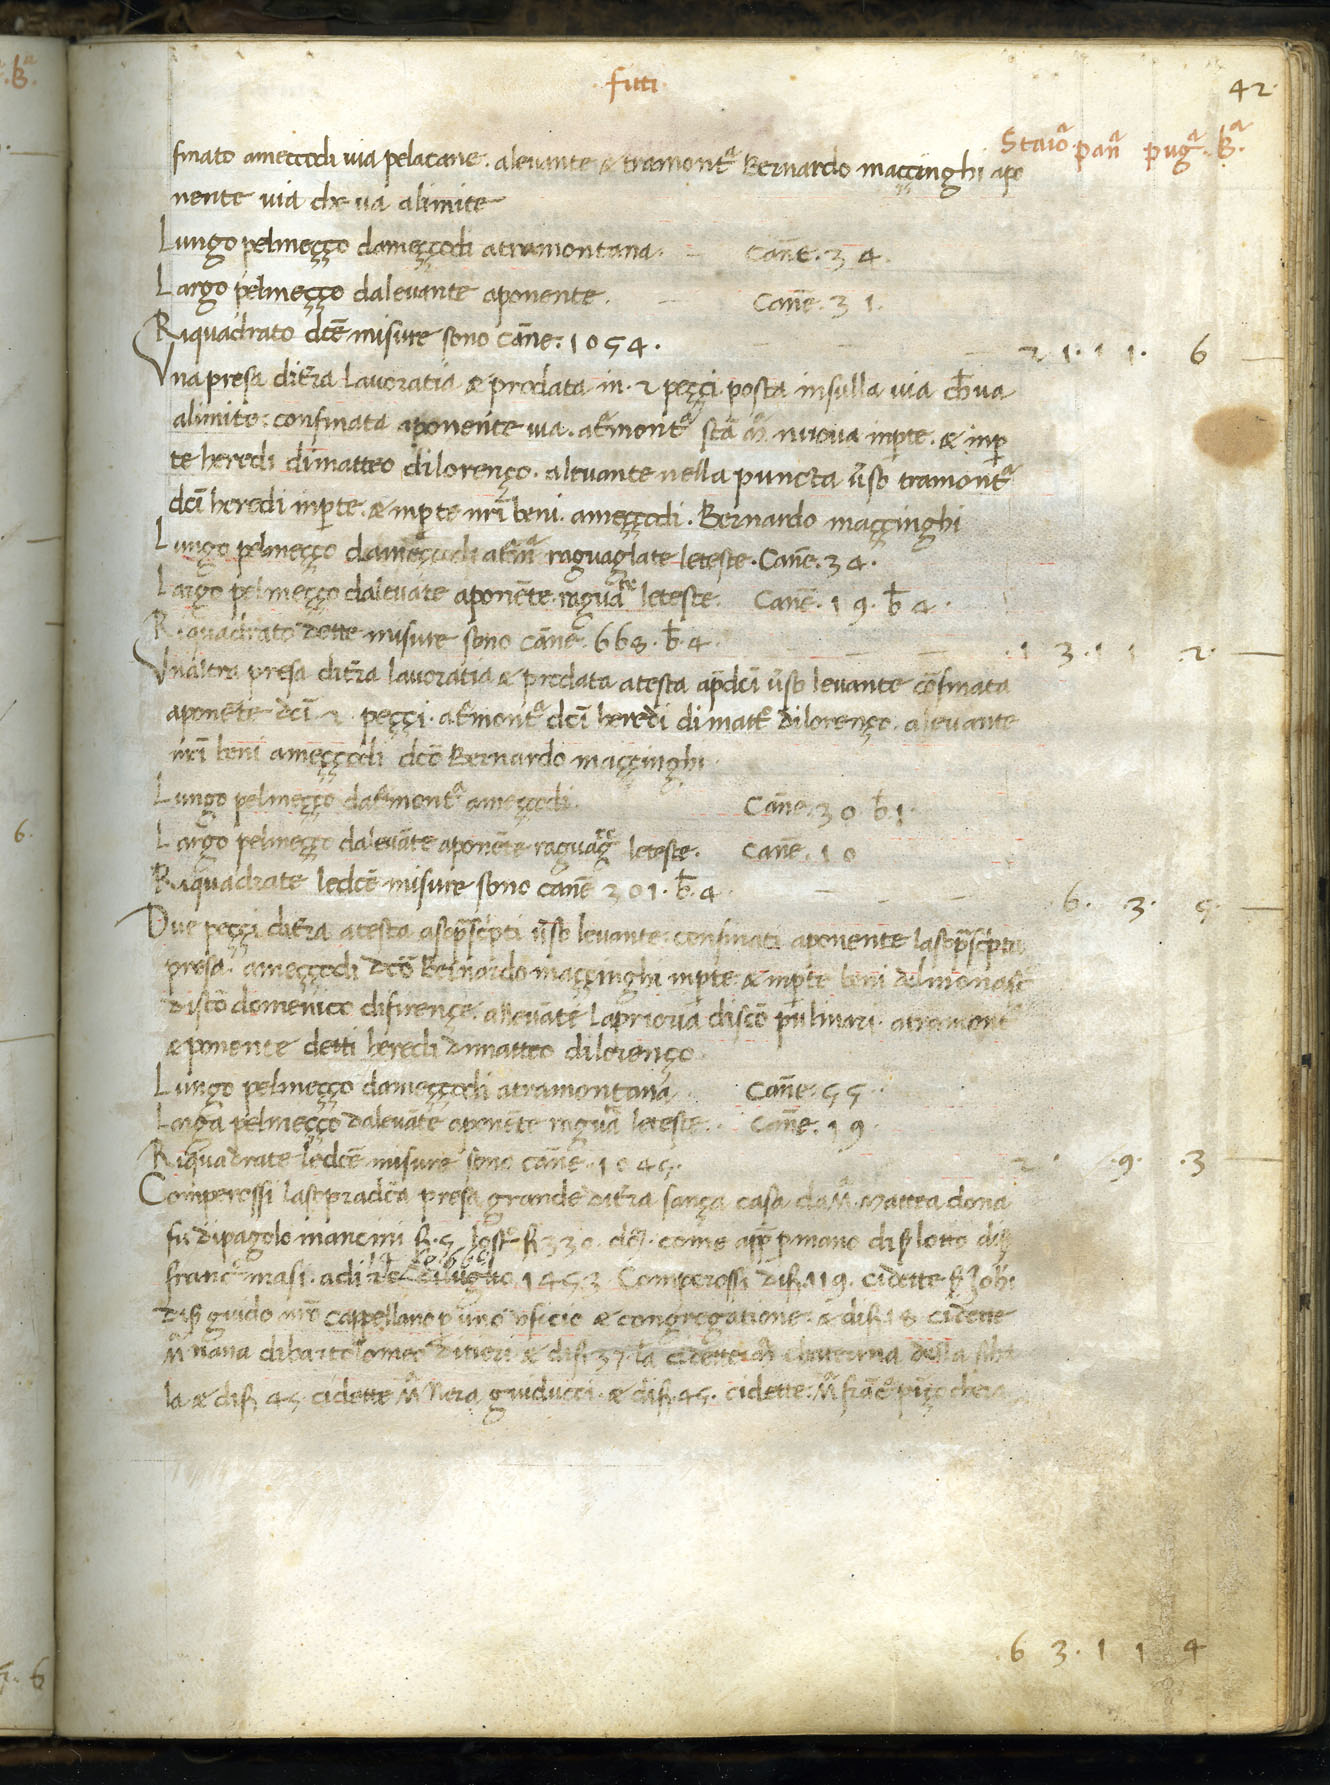 fitti
42
Staioᵃ panᵃ pugᵃ. Bᵃ.
finato ameççodi via pelacane. alevante & tramontᵃ Bernardo maççinghi apo
nente via che va alimite
Lungo pelmeçço dameççodi atramontana. Can̄e. 34.
Largo pelmeçço dalevante aponente. Can̄e. 31.
Riquadrato dc̄e misure sono cān̄e: 1054. 2 1. 11. 6
Una presa dit̄ra lavoratia & prodata in. 2 peççi posta insulla via ch̄va
alimite: confinata aponente via. at̄rmontᵃ sc̄a Mᵃ nuova inp̄te. & inp̄
te heredi dimatteo dilorenço. alevante nella puncta v̄so tramontᵃ
dc̄i heredi inp̄te. & inp̄te nr̄i beni. ameççodi. Bernardo maççinghi
Lungo pelmeçço dameççodi at̄rmᵃ raguaglate leteste. Can̄e. 34.
Largo pelmeçço dalevāte aponēte. raguaᵗᵉ leteste. Can̄e. 19. b̄ 4.
Riquadrato dette misure sono cān̄e. 668. b̄. 4. .1 3. 11 .2.
Unaltra presa dit̄ra lavoratia & prodata atesta ap̄dc̄i v̄so levante cōfinata
aponēte dc̄i 2 peççi. at̄rmontᵃ dc̄i heredi di mattᵒ dilorenço. alevante
nr̄i beni ameççodi dc̄o Bernardo maççinghi
Lungo pelmeçço dat̄rmontᵃ ameççodi. Cān̄e. 30 b̄1.
Largo pelmeçço dalevāte aponēte raguagᵗᵉ leteste. Can̄e. 10
Riquadrate ledc̄e misure sono can̄e 301. b̄. 4. 6. .3. 5.
Due peççi dit̄ra atesta asop̄sc̄pti v̄so levante. confinati aponente lasop̄sc̄pta
presa. ameççodi dc̄o Bernardo maççinghi inp̄te & inp̄te beni delmonast
disc̄o domenico difirençe. allevāte laprioria disc̄o
&ponente detti heredi dimatteo dilorenço
Lungo pelmeçço dameççodi atramontana. Can̄e. 55.
Larga pelmeçço dalevāte aponēte raguaᵗᵉ leteste. Can̄e. 19.
Riquadrate ledc̄e misure sono cān̄e. 1045. 2. .9. .3
Comperossi lasopradc̄a presa grande dit̄ra sança casa daMᵃ Mattea dona
fu dipagolo mancini 330 come app̄ p̄mano diS lotto diS
francᵒ masi. adi luglio. 1453 Comperossi dif. 119. cidette
diS guido nr̄o cappellano p̄ uno uficio & congregatione: & dif. 18 cidette
Mᵃ nana dibartolomeo & dif. 37. cidette della
la & dif. 45 cidette Mᵃ Nera guiducci. & dif. 45. cidette: Mᵃ francᵃ pinçochera
6 3. 1 1 4